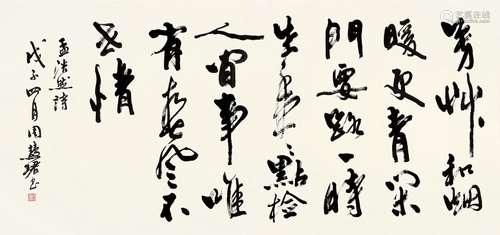 芳艸和烟
暖更青闲
门要路一時
生年々點檢
人间事唯
有春风不
世情
孟浩然詩
戊子四月周慧珺书